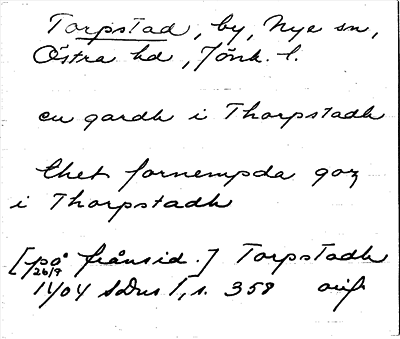 Torpstad, by, Nye sn,
Östra hd, Jönk. l.
en gardh i Thorpstadh
thet fornempda goz
i Thorpstadh
[på frånsid.] Torpstadh
26/9
1404 SDns 1, s. 358 orig